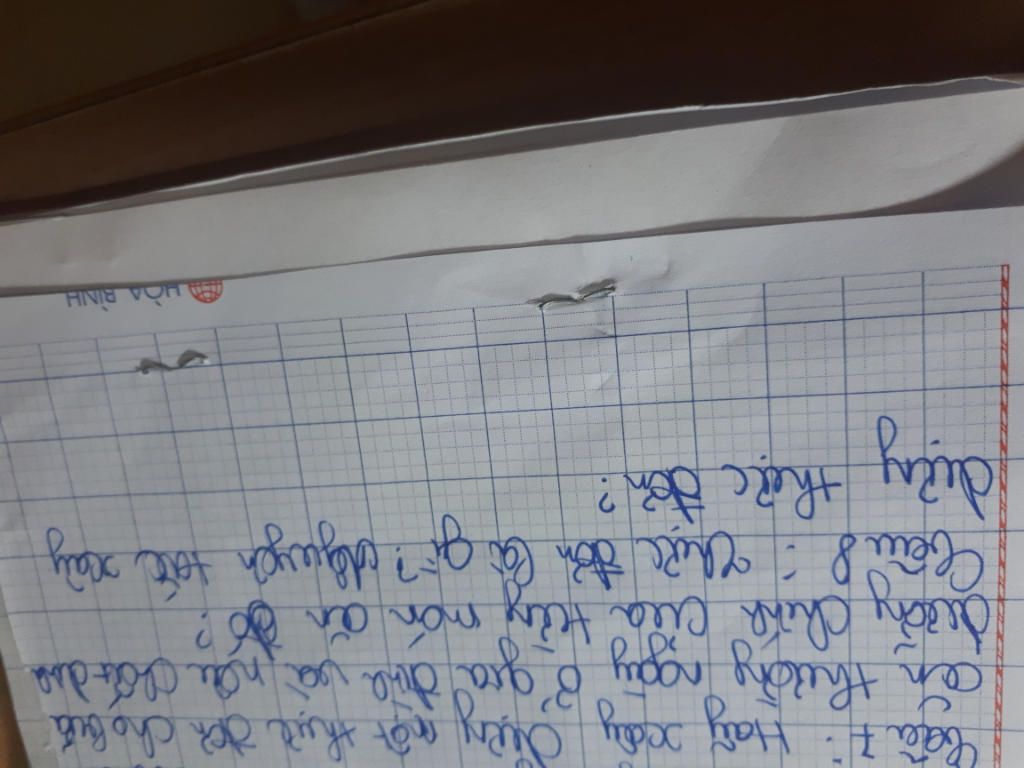 Câu 7: Hãy xây dựng một thực đơn cho bữa
ăn thường ngày ở gia đình và nêu chất dinh
dưỡng chính của từng món ăn đó?
Câu 8: Thực đơn là gì? Nguyên tắc xây
dựng thực đơn?
HÒA BÌNH